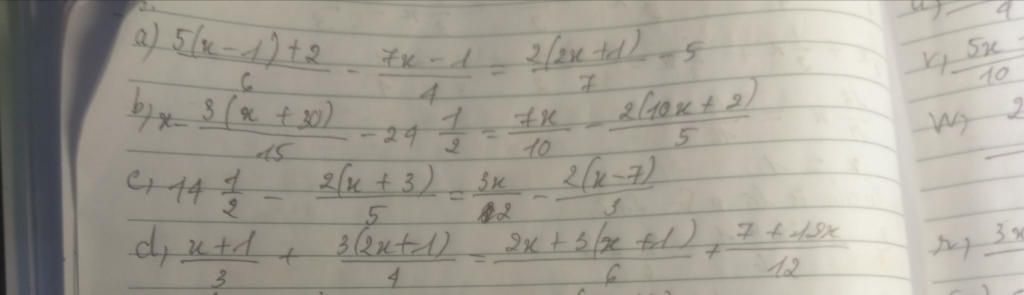 a) \frac{5(x-1)+2}{6} - \frac{7x-1}{4} = \frac{2(2x+1)}{7} - 5
b, x - \frac{3(x+30)}{15} - 24 \frac{1}{2} = \frac{7x}{10} - \frac{2(10x+2)}{5}
c, 14 \frac{1}{2} - \frac{2(x+3)}{5} = \frac{3x}{2} - \frac{2(x-7)}{3}
d, \frac{x+1}{3} + \frac{3(2x+1)}{4} = \frac{2x+3(x+1)}{6} + \frac{7+12x}{12}
v, \frac{5x}{10}